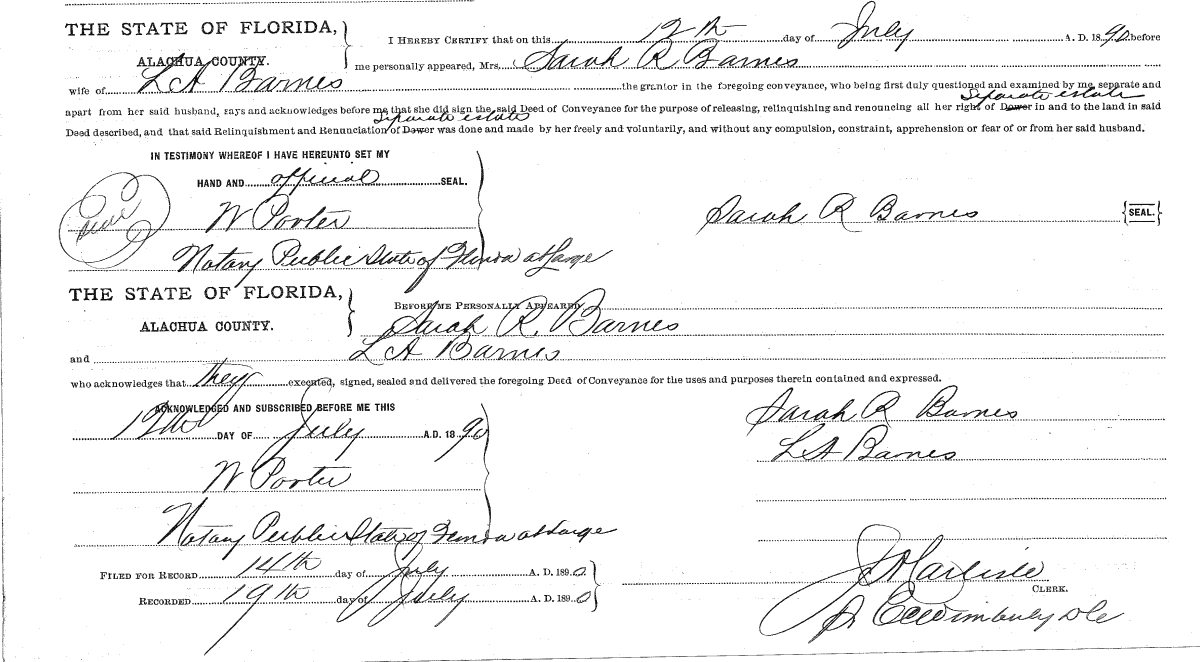 THE STATE OF FLORIDA,
ALACHUA COUNTY.
I HEREBY CERTIFY that on this 12th day of July A. D. 1890 before
me personally appeared, Mrs. Sarah R Barnes
wife of L A Barnes the grantor in the foregoing conveyance, who being first duly questioned and examined by me, separate and
Separate estate
apart from her said husband, says and acknowledges before me that she did sign the said Deed of Conveyance for the purpose of releasing, relinquishing and renouncing all her right of Dower in and to the land in said
Separate estate
Deed described, and that said Relinquishment and Renunciation of Dower was done and made by her freely and voluntarily, and without any compulsion, constraint, apprehension or fear of or from her said husband.
IN TESTIMONY WHEREOF I HAVE HEREUNTO SET MY
HAND AND official SEAL.
Seal
W Porter
Sarah R Barnes {SEAL.}
Notary Public State of Florida at Large
THE STATE OF FLORIDA,
ALACHUA COUNTY.
BEFORE ME PERSONALLY APPEARED
Sarah R. Barnes
and L A Barnes
who acknowledges that they executed, signed, sealed and delivered the foregoing Deed of Conveyance for the uses and purposes therein contained and expressed.
ACKNOWLEDGED AND SUBSCRIBED BEFORE ME THIS
12th DAY OF July A.D. 1890
Sarah R Barnes
L A Barnes
W Porter
Notary Public State of Florida at Large
FILED FOR RECORD 14th day of July A. D. 1890
RECORDED 19th day of July A. D. 1890
Carlisle
CLERK.
Wimberly D C